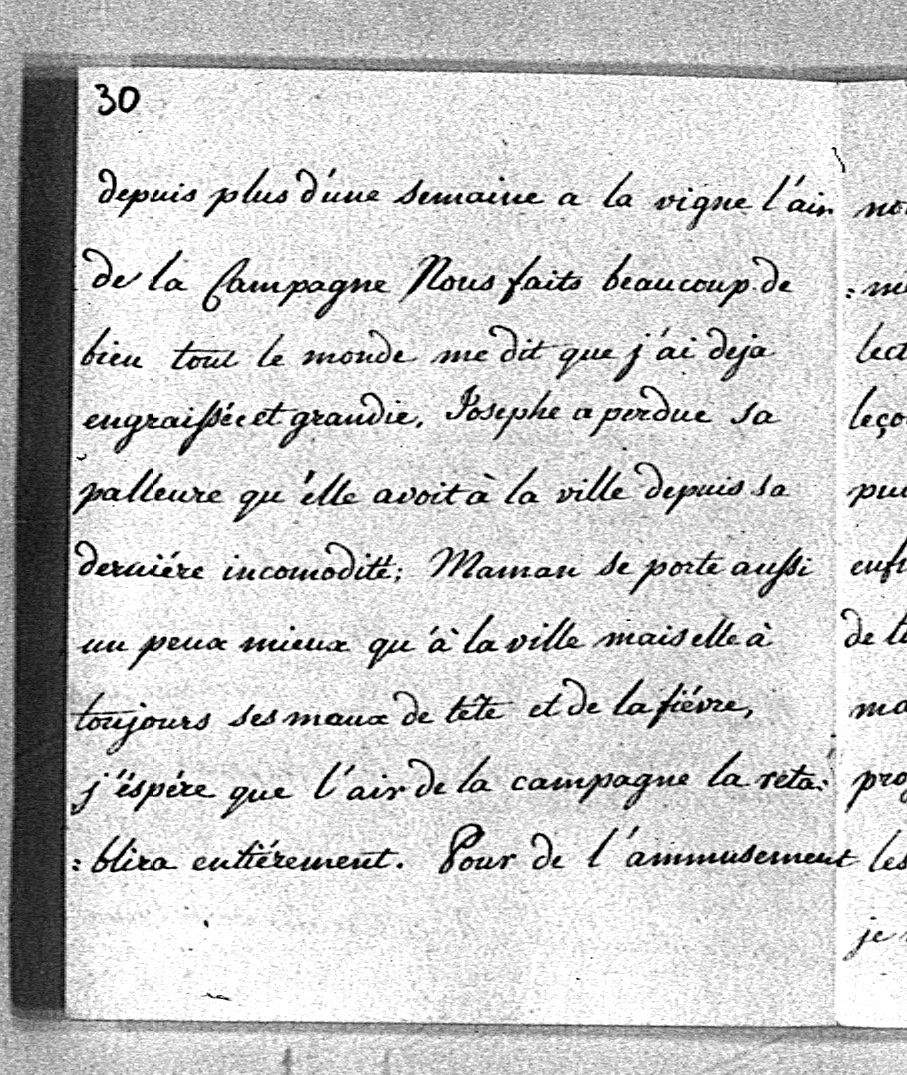 30
depuis plus d'une semaine a la vigne l'air
de la Campagne Nous faits beaucoup de
bien tout le monde me dit que j'ai deja
engraissée et grandie, Josephe a perdue sa
palleure qu'elle avoit à la ville depuis sa
derniére incomodité; Maman se porte aussi
un peux mieux qu'à la ville mais elle à
toujours ses maux de tête et de la fiévre,
j'éspére que l'air de la campagne la réta:
:blira entiérement. Pour de l'ammusement